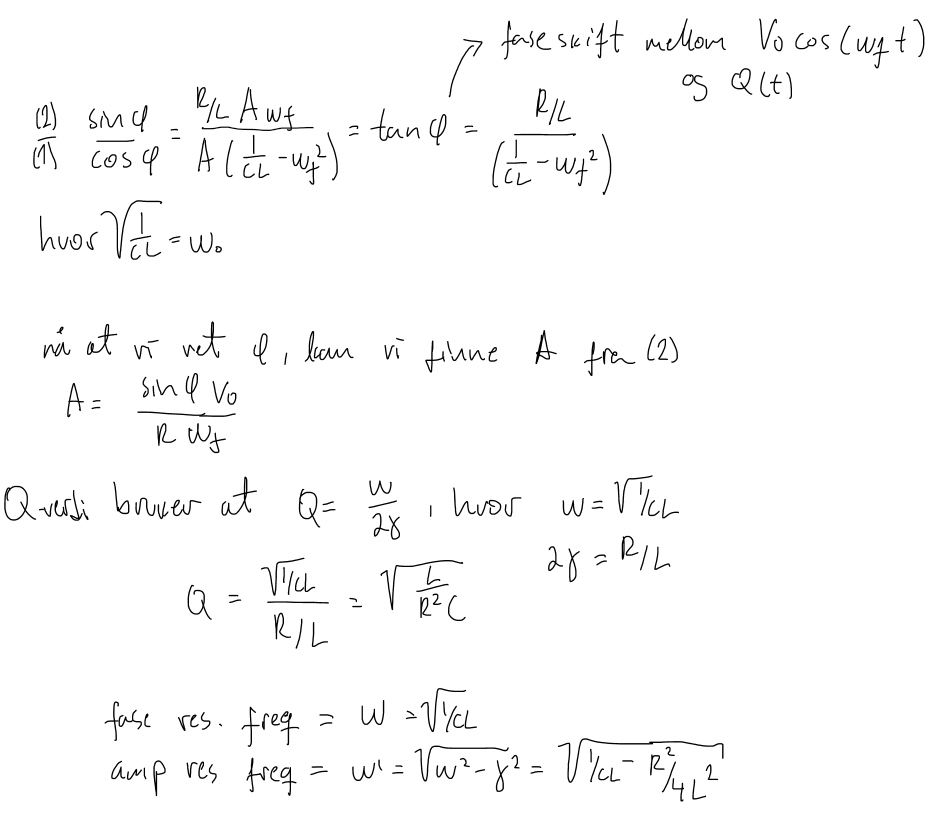 faseskift mellom V₀ cos(w_f t)
og Q(t)
(2)/(1) sin φ / cos φ = (R/L A w_f) / (A (1/CL - w_f²)) = tan φ = (R/L) / (1/CL - w_f²)
hvor √(1/CL) = w₀
nå at vi vet φ, kan vi finne A fra (2)
A = (sin φ V₀) / (R w_f)
Q verdi bruker at Q = w / 2γ, hvor w = √(1/CL)
2γ = R/L
Q = √(1/CL) / (R/L) = √(L / R²C)
fase res. freq = w = √(1/CL)
amp res freq = w' = √(w² - γ²) = √(1/CL - R²/4L²)